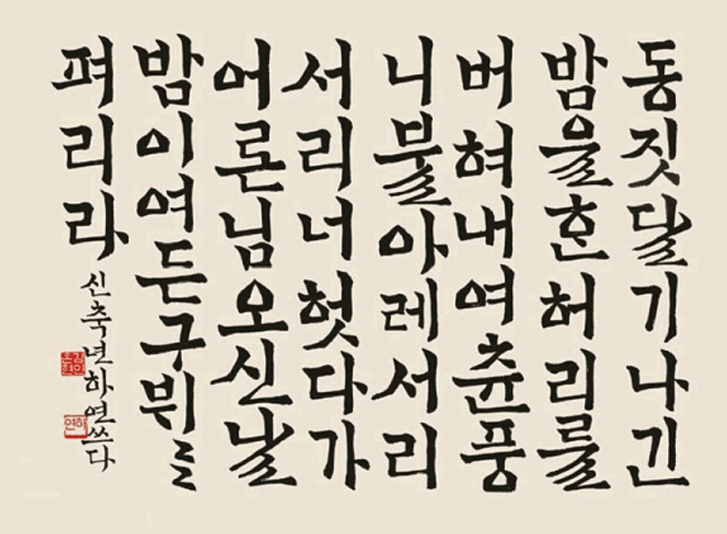 동짓달기나긴
밤을ᄒᆞᆫ허리를
버혀내여츈풍
니불아레서리
서리너헛다가
어론님오신날
밤이여든구뷔를
펴리라
신축년하연쓰다
하연